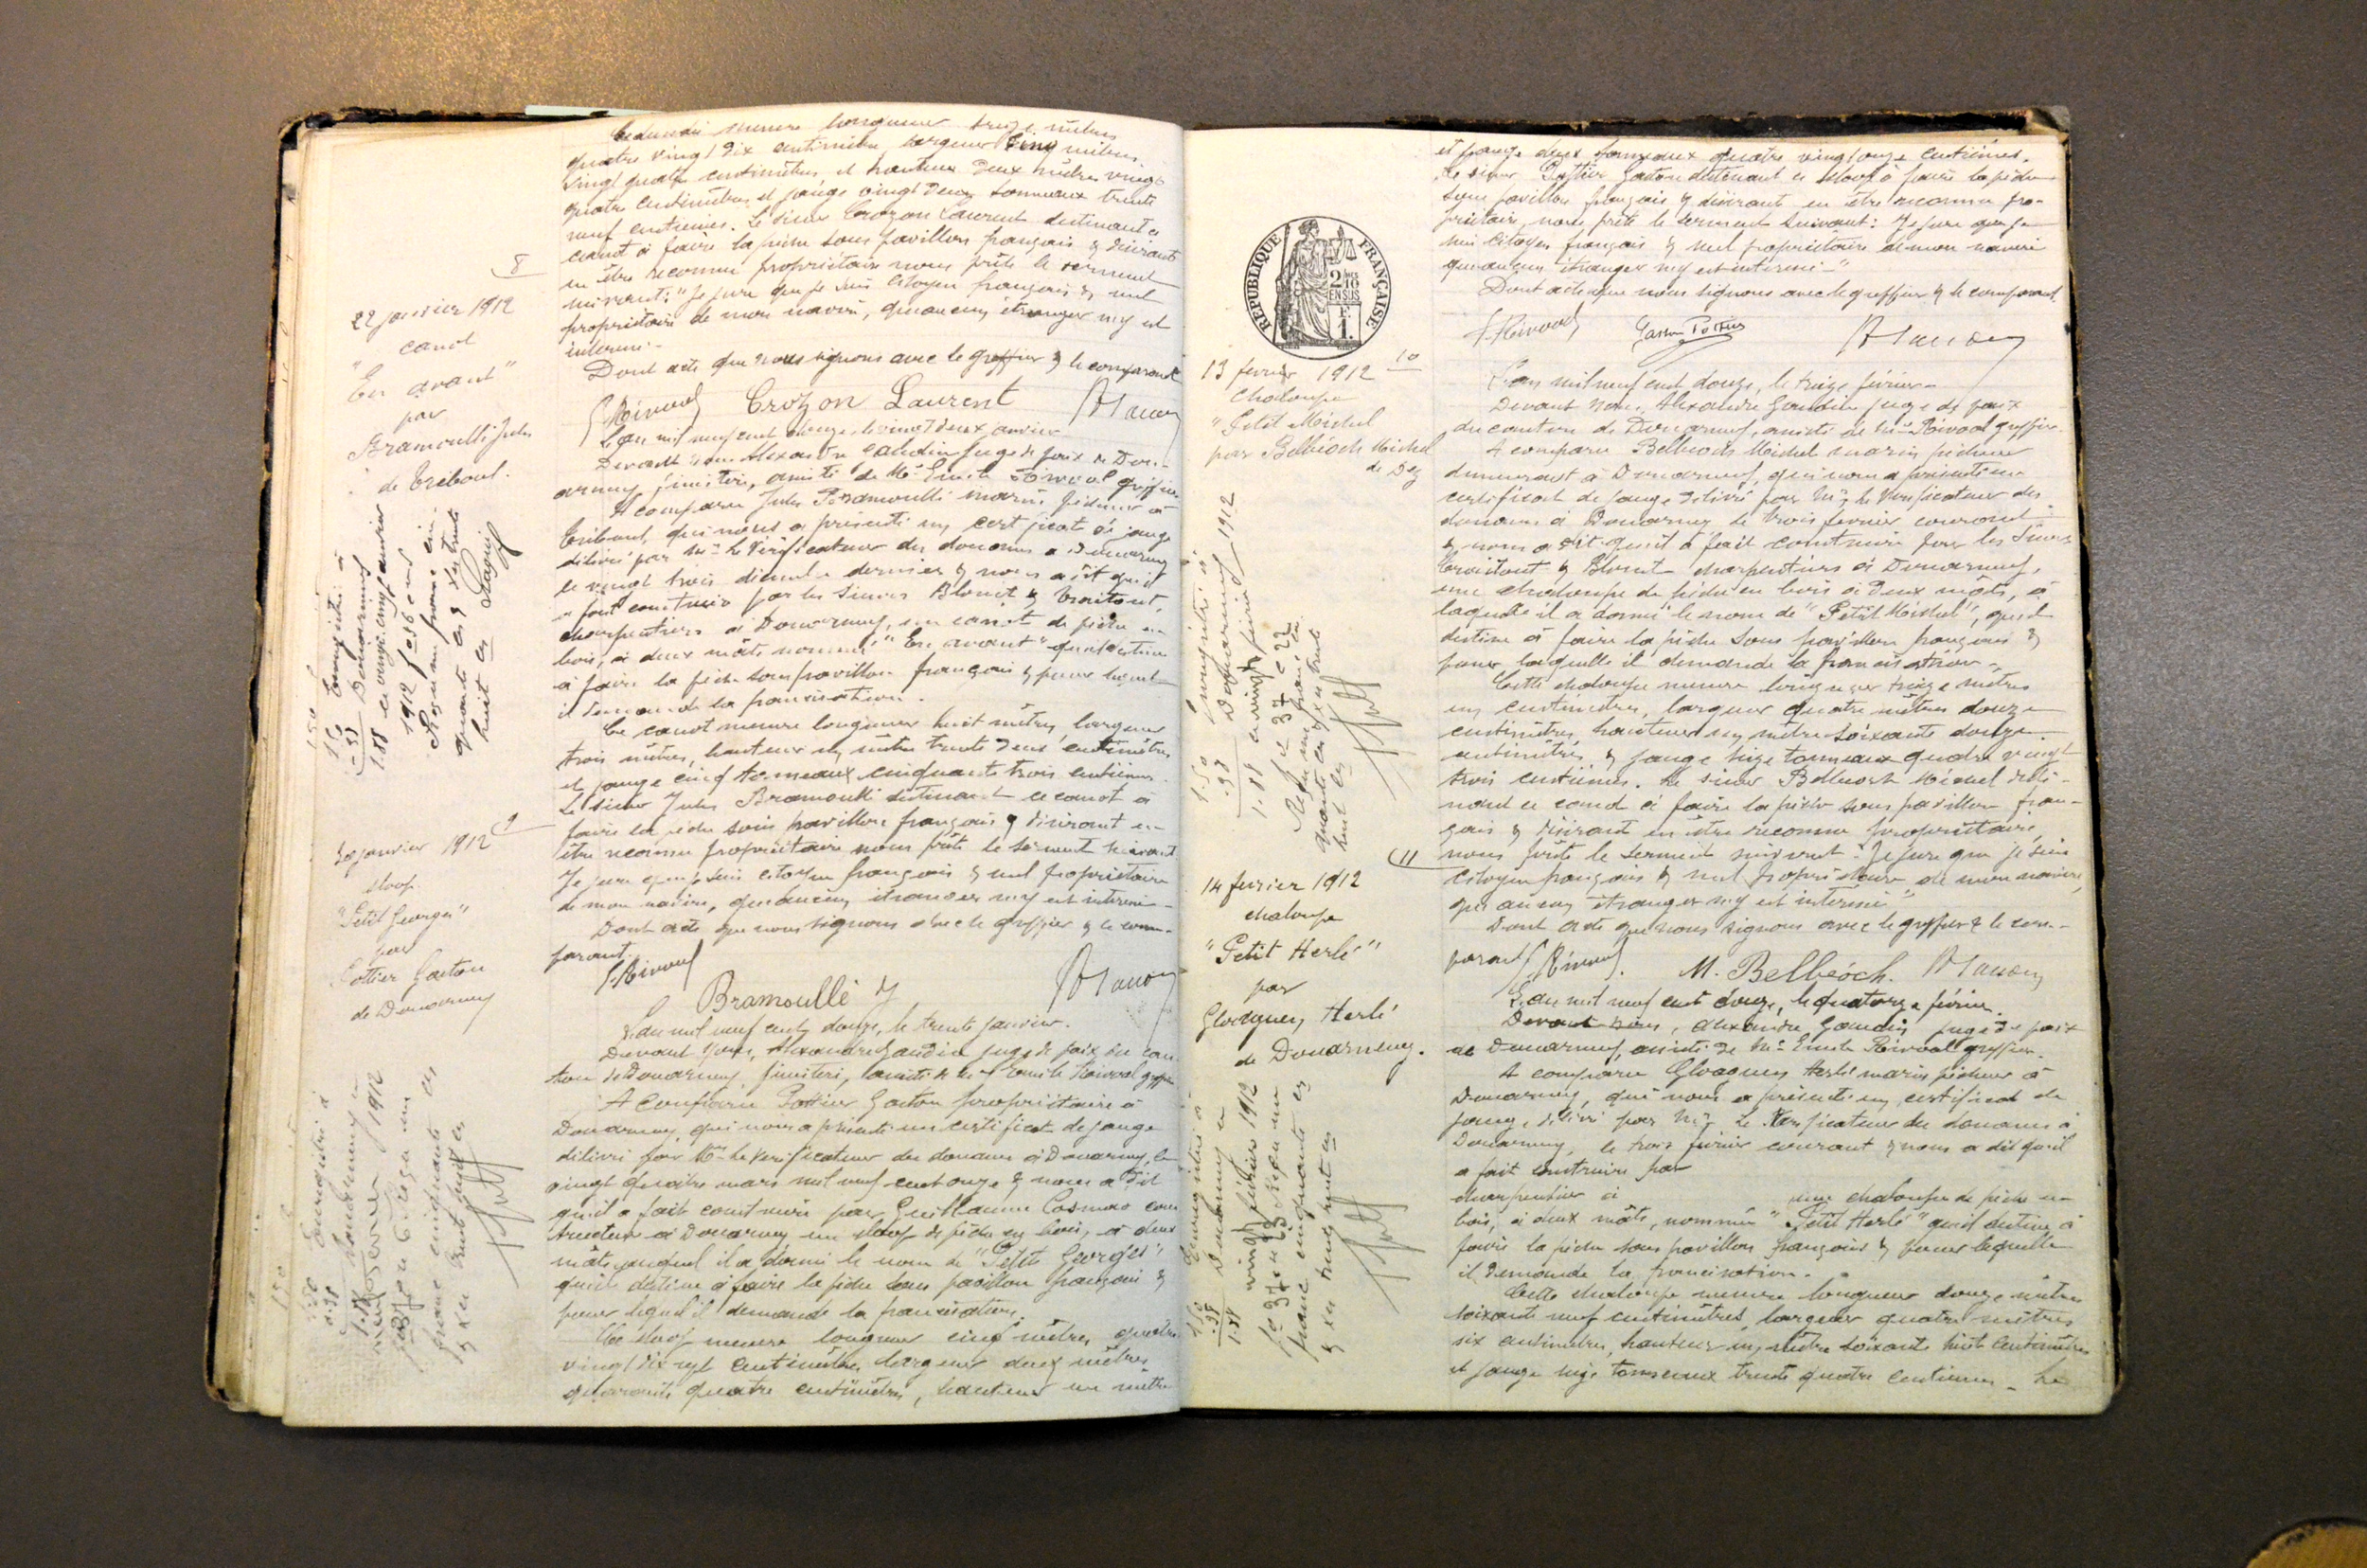 mesure longueur treize mètres
quatre vingt dix centimètres, largeur cinq mètres
vingt quatre centimètres, et hauteur deux mètres vingt
quatre centimètres et jauge vingt deux tonneaux trente
neuf centièmes. Le sieur Crozon Laurent destinant ce
canot à faire la pêche sous pavillon français & désirant
en être reconnu propriétaire nous prête le serment
suivant: "Je jure que je suis citoyen français & seul
propriétaire de mon navire, qu'aucun étranger n'y est
intéressé -
Dont acte que nous signons avec le greffier & le comparant
Crozon Laurent
8
22 janvier 1912
canot
"En avant"
par
Bramoullé Jules
de Tréboul.
L'an mil neuf cent douze, le vingt deux janvier
Devant nous Alexandre Gaudin juge de paix de Douar-
nenez, finistère, assisté de Me Emile Rivoal greffier
A comparu Jules Bramoullé marin pêcheur à
Tréboul, qui nous a présenté un certificat de jauge
délivré par Mr le Vérificateur des douanes à Douarnenez
le vingt trois décembre dernier & nous a dit qu'il
a fait construire par les sieurs Blouet &
charpentiers à Douarnenez, un canot de pêche en
bois, à deux mâts nommé "En avant" qu'il destine
à faire la pêche sous pavillon français & pour lequel
il demande la francisation.
Ce canot mesure longueur huit mètres, largeur
trois mètres, hauteur un mètre trente deux centimètres
et jauge cinq tonneaux cinquante trois centièmes.
Le sieur Jules Bramoullé destinant ce canot à
faire la pêche sous pavillon français & désirant en
être reconnu propriétaire nous prête le serment suivant
Je jure que je suis citoyen français & seul propriétaire
de mon navire, qu'aucun étranger n'y est intéressé -
Dont acte que nous signons avec le greffier & le com-
parant.
Bramoullé J
Enregistré à
Douarnenez
le vingt cinq janvier
1912
Reçu un franc cin-
quante ces & Xes trente
huit ces
1.50
.38
1.88
9
30 janvier 1912
sloop
"Petit Georges"
par
Pottier Gaston
de Douarnenez
L'an mil neuf cent douze, le trente janvier.
Devant nous, Alexandre Gaudin juge de paix du can-
ton de Douarnenez, finistère, assisté de Me Emile Rivoal greffier
A comparu Pottier Gaston propriétaire à
Douarnenez, qui nous a présenté un certificat de jauge
délivré par Mr le Vérificateur des douanes à Douarnenez, le
vingt quatre mars mil neuf cent onze & nous a dit
qu'il a fait construire par Guillaume cons-
tructeur à Douarnenez un sloop de pêche en bois, à deux
mâts auquel il a donné le nom de "Petit Georges"
qu'il destine à faire la pêche sous pavillon français &
pour lequel il demande la francisation.
Ce sloop mesure longueur cinq mètres, quatre
vingt dix sept centimètres, largeur deux mètres
quarante quatre centimètres, hauteur un mètre
Enregistré à
Douarnenez
1912
franc cinquante ces
& Xes trente huit ces
et jauge deux tonneaux quatre vingt onze centièmes.
Le sieur Pottier Gaston destinant ce sloop à faire la pêche
sous pavillon français & désirant en être reconnu pro-
priétaire, nous prête le serment suivant: Je jure que je
suis citoyen français & seul propriétaire de mon navire
qu'aucun étranger n'y est intéressé -"
Dont acte que nous signons avec le greffier & le comparant.
Gaston Pottier
REPUBLIQUE FRANÇAISE
2/10
EN SUS
F
1.
10
13 février 1912
chaloupe
"Petit Michel
par Belbéoch Michel
de Dez
L'an mil neuf cent douze, le treize février -
Devant nous, Alexandre Gaudin juge de paix
du canton de Douarnenez, assisté de Me Rivoal greffier
A comparu Belbeoch Michel marin pêcheur
demeurant à Douarnenez, qui nous a présenté un
certificat de jauge délivré par Mr le Vérificateur des
douanes à Douarnenez le trois février courant
& nous a dit qu'il a fait construire par les sieurs
& Blouet charpentiers à Douarnenez,
une chaloupe de pêche en bois à deux mâts, à
laquelle il a donné le nom de "Petit Michel", qu'il
destine à faire la pêche sous pavillon français &
pour laquelle il demande la francisation -
Cette chaloupe mesure longueur treize mètres
un centimètre, largeur quatre mètres douze
centimètres, hauteur un mètre soixante douze
centimètres, & jauge seize tonneaux quatre vingt
trois centièmes. Le sieur Belbeoch Michel desti-
nant ce canot à faire la pêche sous pavillon fran-
çais & désirant en être reconnu propriétaire,
nous prête le serment suivant: "Je jure que je suis
citoyen français & seul propriétaire de mon navire,
qu'aucun étranger n'y est intéressé"
Dont acte que nous signons avec le greffier & le com-
parant
M. Belbéoch.
Enregistré à
Douarnenez
février 1912
Reçu un franc cin
quante ces & Xes trente
huit ces
1.50
.38
1.88
11
14 février 1912
chaloupe
"Petit Herlé"
par
Gloaguen Herlé
de Douarnenez.
L'an mil neuf cent douze, le quatorze février.
Devant nous, Alexandre Gaudin juge de paix
de Douarnenez, assisté de Me Emile Rivoal greffier.
A comparu Gloaguen Herlé marin pêcheur à
Douarnenez, qui nous a présenté un certificat de
jauge délivré par Mr le Vérificateur des douanes à
Douarnenez, le trois février courant & nous a dit qu'il
a fait construire par
charpentier à une chaloupe de pêche en
bois, à deux mâts, nommée "Petit Herlé" qu'il destine à
faire la pêche sous pavillon français & pour laquelle
il demande la francisation.
Cette chaloupe mesure longueur douze mètres
soixante neuf centimètres, largeur quatre mètres
six centimètres, hauteur un mètre soixante huit centimètres
et jauge seize tonneaux trente quatre centièmes - Le
Enregistré à
Douarnenez le
vingt février 1912
Reçu un
franc cinquante ces
& Xes trente huit ces
1.50
.38
1.88